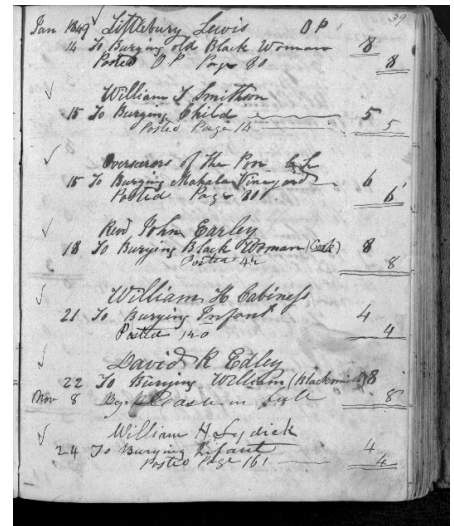 39
Jan 1849 Littlebury Lewis O P
14 To Burying old Black Woman 8
Posted O P Page 80 8
William T Smithson
15 To Burying Child 5
Posted Page 14 5
Overseers of the Poor
15 To Burying Mahala Vineyard 6
Posted Page 80 6
Revd John Earley
18 To Burying Black Woman 8
Posted 42 8
William H Cabiness
21 To Burying Infant 4
Posted 140 4
David R Edley
22 To Burying William (Blacksmith) 8
Nov 8 By Cash in full 8
William H Lydick
24 To Burying Infant 4
Posted Page 161 4